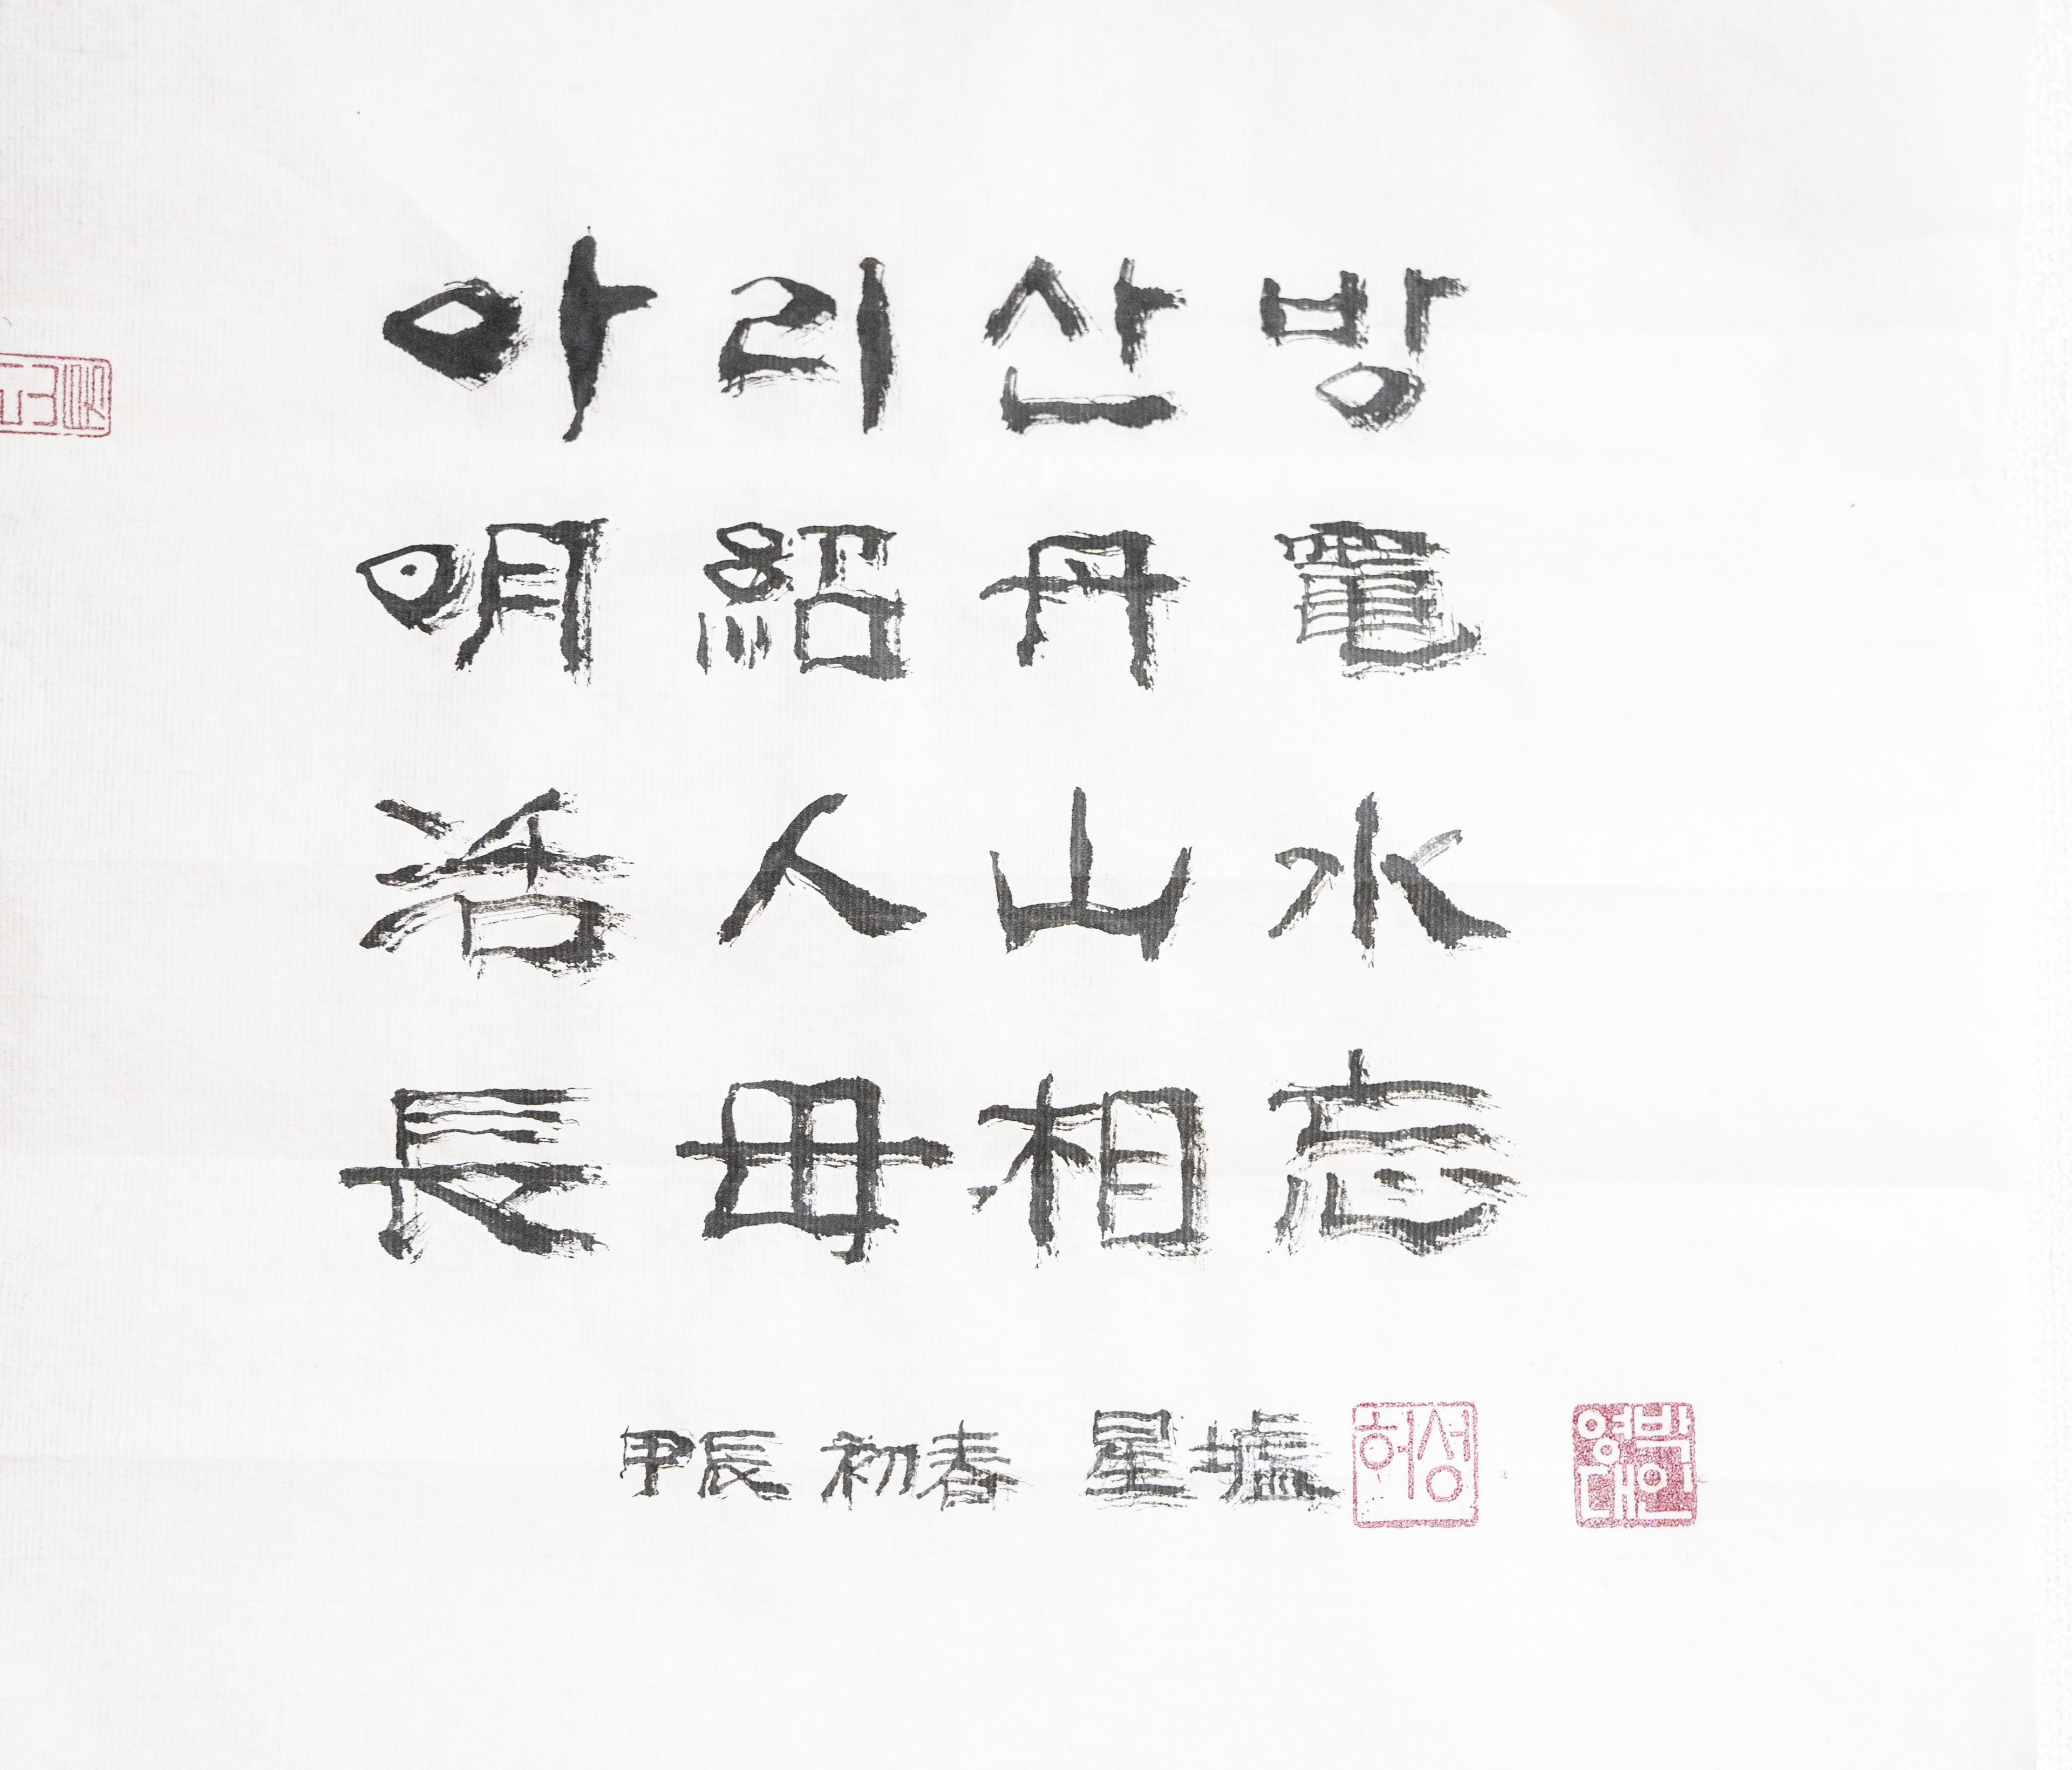 아리산방
明紹丹竈
活人山水
長毋相忘
甲辰 初春 星墟 허성 박영대인